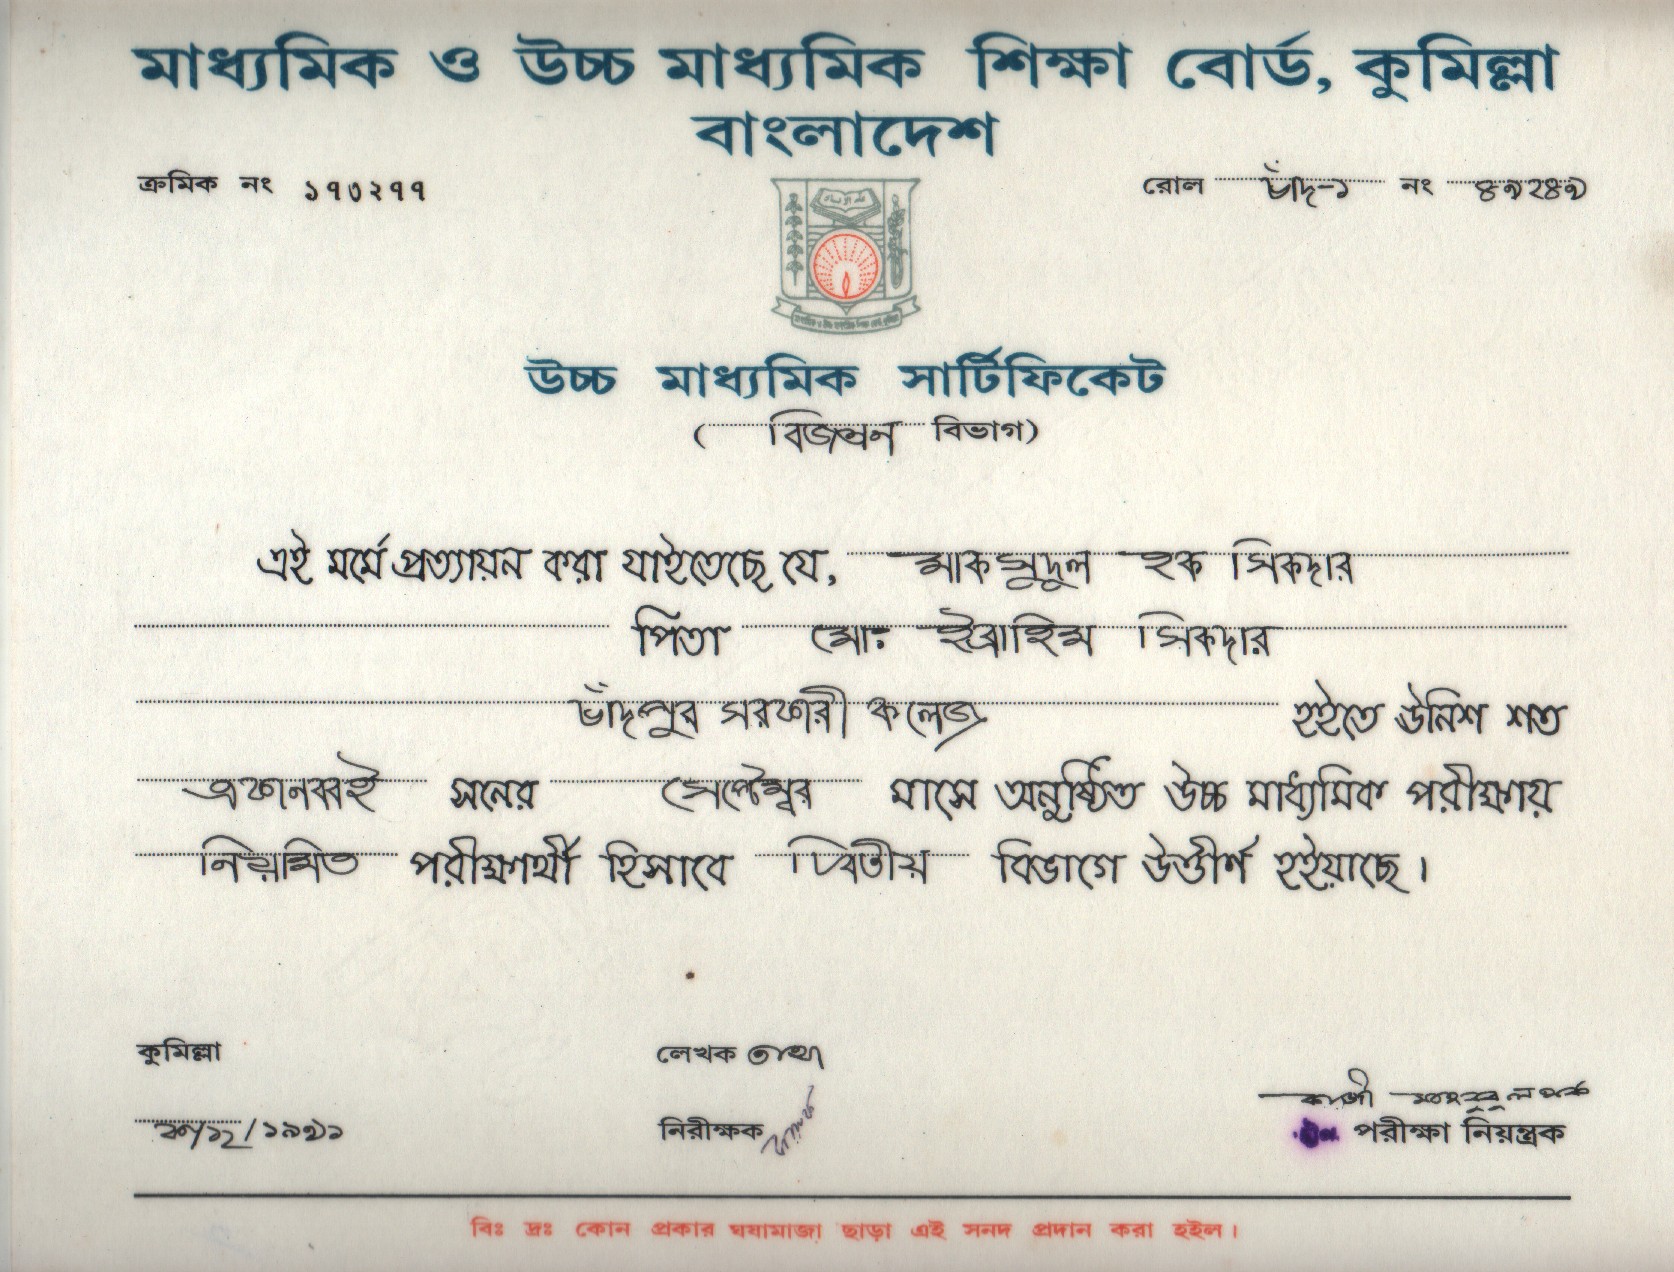 মাধ্যমিক ও উচ্চ মাধ্যমিক শিক্ষা বোর্ড, কুমিল্লা
বাংলাদেশ
ক্রমিক নং ১৭৩২৭৭
রোল চাঁদ-১ নং ৪৯২৪৯
উচ্চ মাধ্যমিক সার্টিফিকেট
( বিজ্ঞান বিভাগ)
এই মর্মে প্রত্যায়ন করা যাইতেছে যে, মাকসুদুল হক সিকদার
পিতা মো: ইব্রাহিম সিকদার
চাঁদপুর সরকারী কলেজ হইতে উনিশ শত
একানব্বই সনের সেপ্টেম্বর মাসে অনুষ্ঠিত উচ্চ মাধ্যমিক পরীক্ষায়
নিয়মিত পরীক্ষার্থী হিসাবে দ্বিতীয় বিভাগে উত্তীর্ণ হইয়াছে।
কুমিল্লা
লেখক
/১২/১৯৯১
নিরীক্ষক
পরীক্ষা নিয়ন্ত্রক
বিঃ দ্রঃ কোন প্রকার ঘষামাজা ছাড়া এই সনদ প্রদান করা হইল।